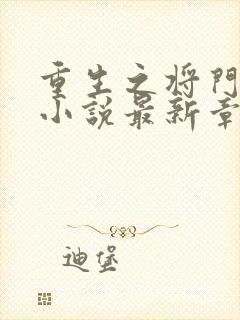 重生之将門
小説最新章
迪堡